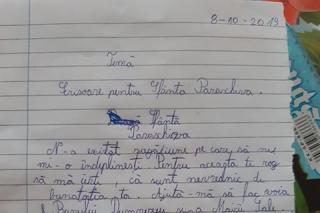 8-10-2019
Temă
Scrisoare pentru Sfânta Parascheva.
Sfântă
Parascheva
N-a existat rugăciune pe care să nu
mi-o îndeplinești. Pentru aceasta te rog
să mă ierți, că sunt nevrednic de
bunătatea ta. Ajută-mă să fac voia